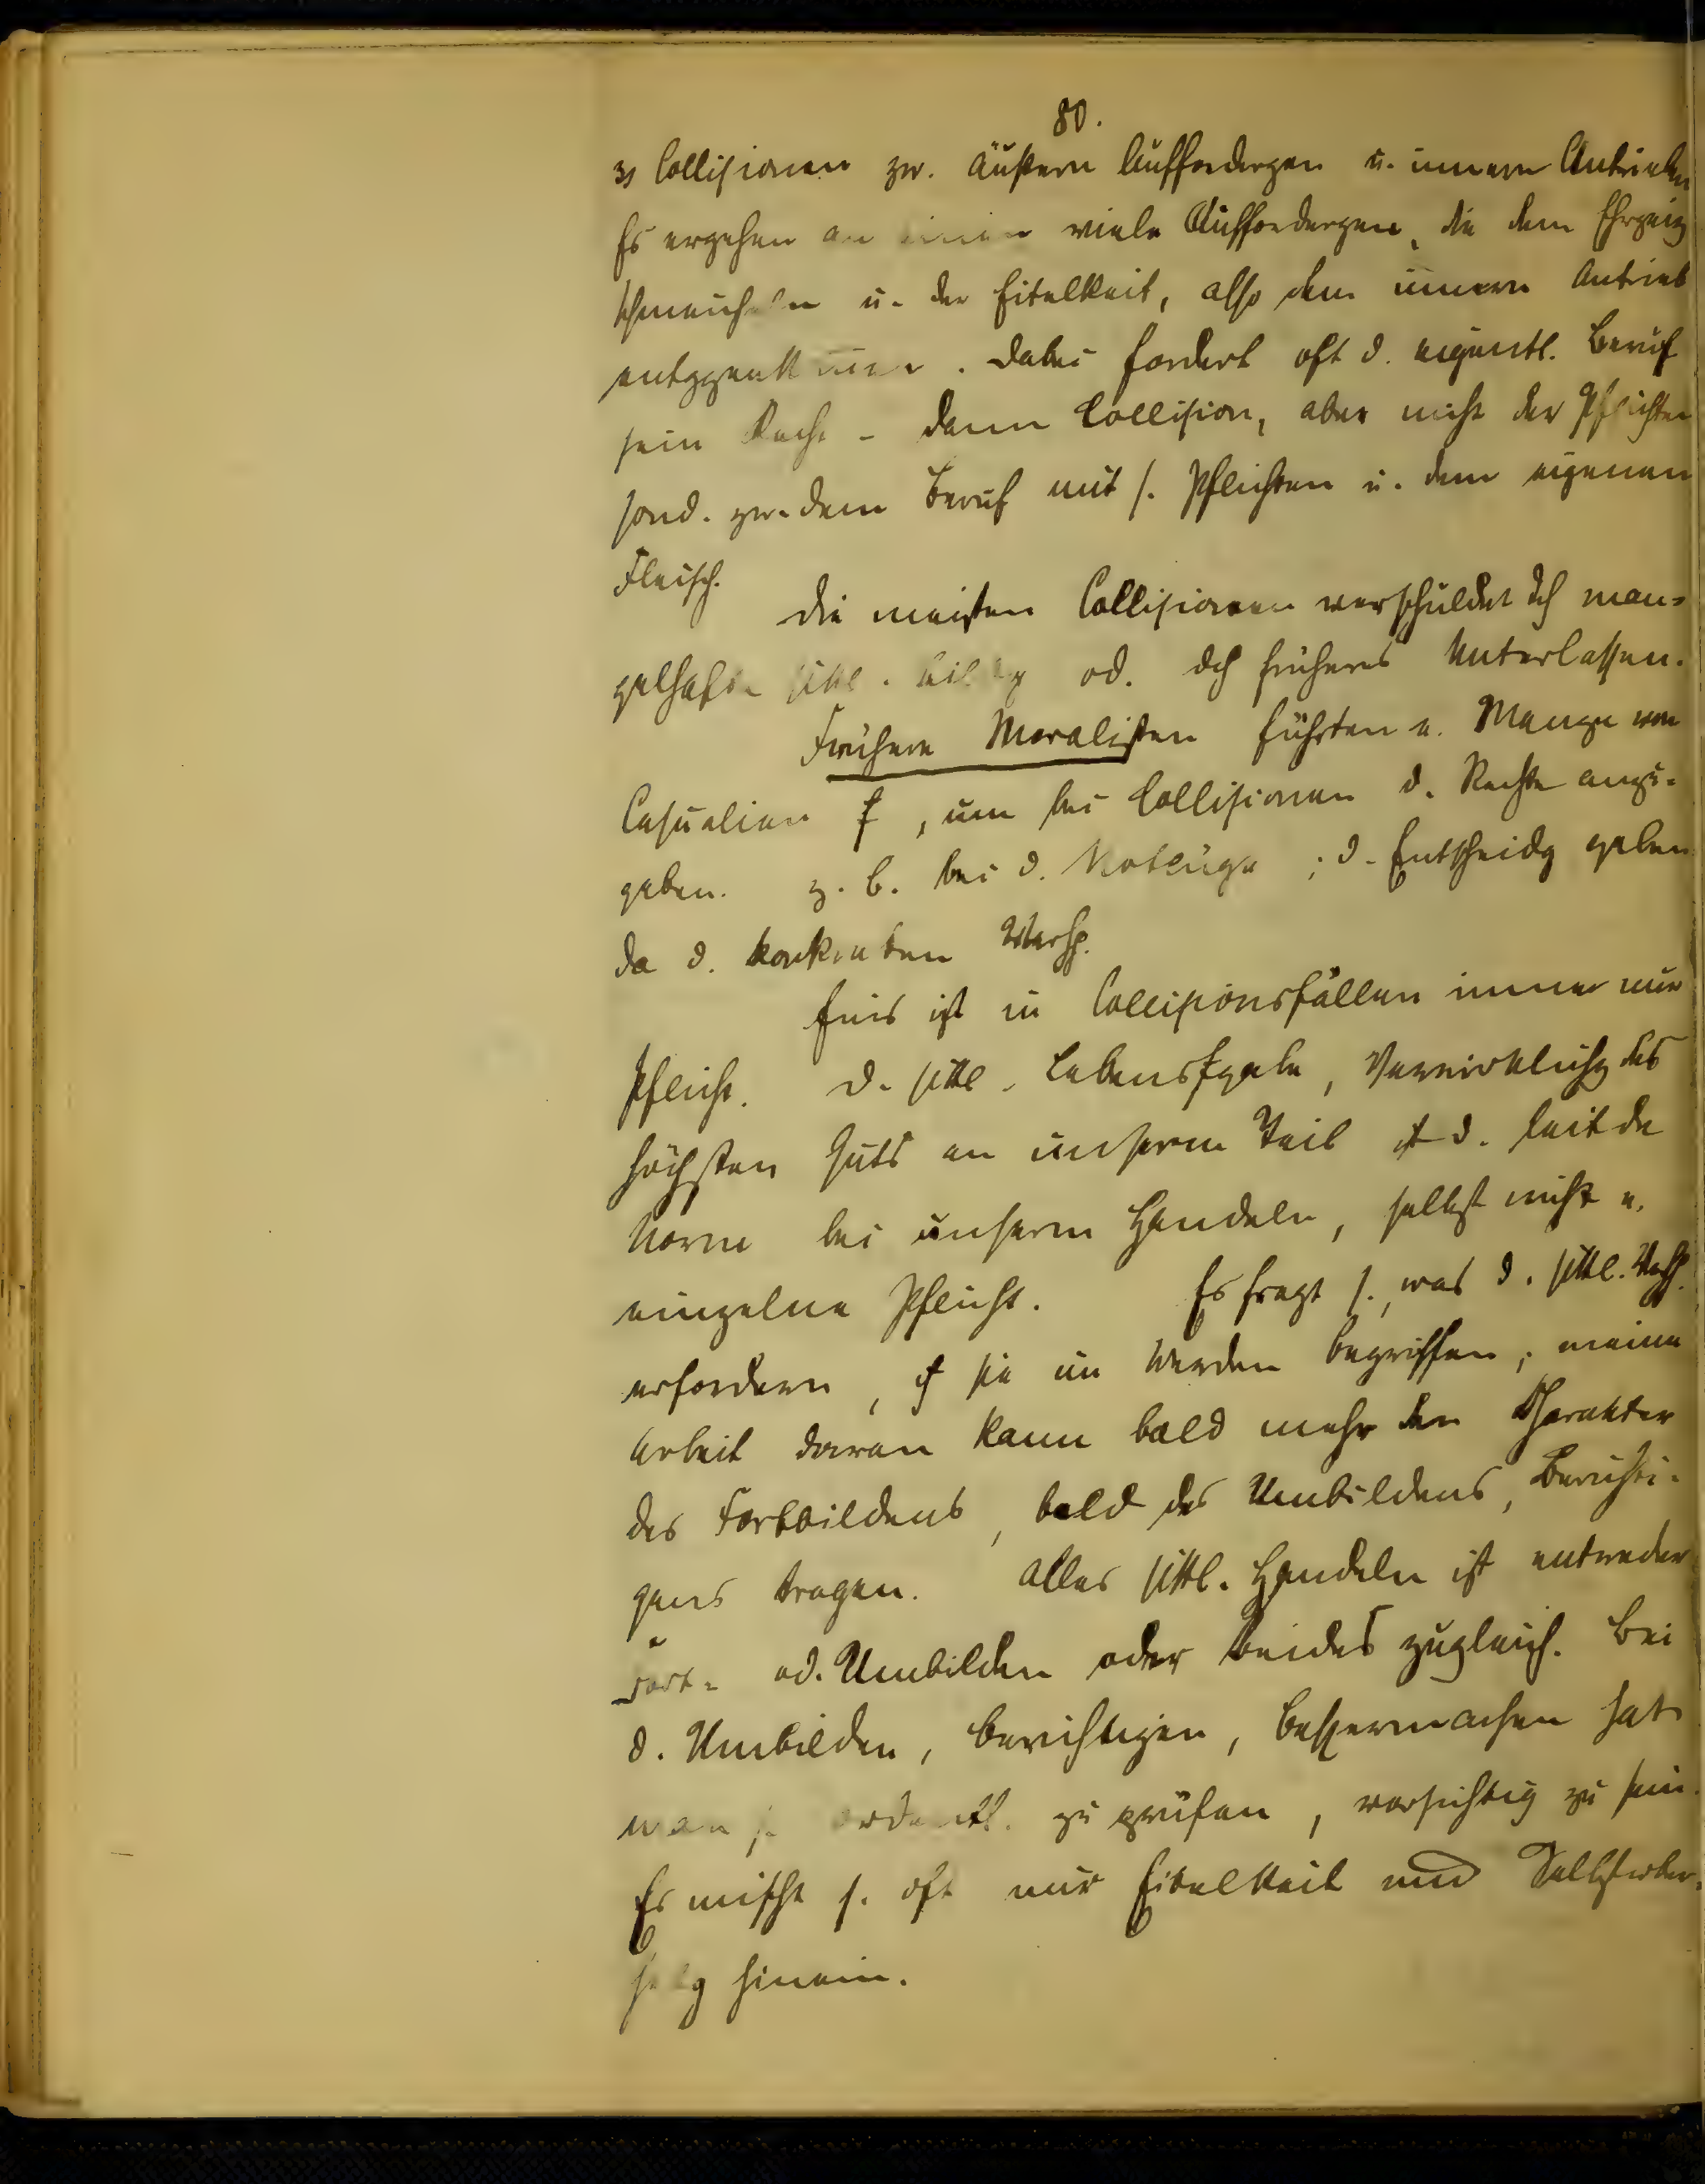 80.
3) Collisionen zw. äußern Auffordergen u. innern Antrieben
Es ergehen an einen viele Auffordergen, die dem Ehrgeiz
schmeicheln u. der Eitelkeit, also dem innern Antrieb
entggenkommen. Dabei fordert oft d. eigentl. Beruf
sein Recht - dann Collision, aber nicht der Pflichten
sond. zw. dem Beruf mit s. Pflichten u. dem eigenen
Fleisch.
Die meisten Collisionen verschuldet dch man-
gelhafte sittl. Bildg od. dch früheres Unterlassen.
Frühere Moralisten führten e. Menge von
Casualien , um bei Collisionen d. Rechte anzu-
geben. z. B. bei d. Notlüge ; d. Entscheidg geben
da d. konkreten
Eins ist in Collisionsfällen immer nur
Pflicht. D. sittl. , Verwirklichg des
höchsten Guts an unserm Teil ist d. leitde
Norm bei unserm Handeln, selbst nicht e.
einzelne Pflicht. Es fragt s., was d. sittl.
erfordern, sie im Werden begriffen; meine
Arbeit daran kann bald mehr den Charakter
des Fortbildens, bald des Umbildens, Berichti-
gens tragen. Alles sittl. Handeln ist entweder
Fort- od. Umbilden oder beides zugleich. Bei
d. Umbilden, berichtigen, bessermachen hat
man s. ordentl. zu prüfen, vorsichtig zu sein.
Es mischt s. oft nur Eitelkeit und
hinein.